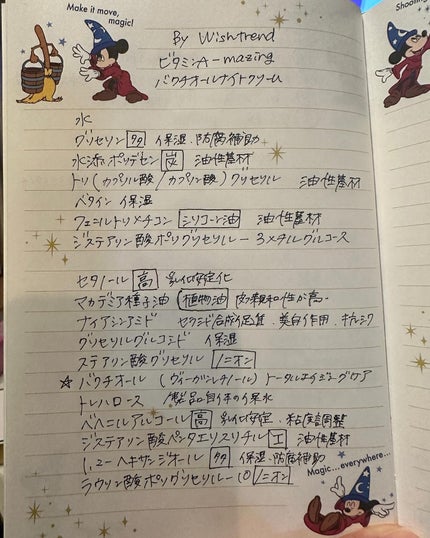 Make it move,
magic!
Shooti
By Wishtrend
ビタミンA-mazing
バクチオールナイトクリーム
水
グリセリン 多 保湿、防腐補助
水添ポリデセン 炭 油性基材
トリ(カプリル酸/カプリン酸)グリセリル 油性基材
ベタイン 保湿
フェニルトリメチコン シリコーン油 油性基材
ジステアリン酸ポリグリセリル-3メチルグルコース
セタノール 高 乳化安定化
マカデミア種子油 植物油 肉親和性が高い
ナイアシンアミド セラミド合成促進、美白作用、
グリセリルグルコシド 保湿
ステアリン酸グリセリル ノニオン
☆ バクチオール (ヴィーガンレチノール) トータルエイジングケア
トレハロース 製品自体の保水
ベヘニルアルコール 高 乳化安定、粘度調整
ジステアリン酸ペンタエリスリチル エ 油性基材
1,2-ヘキサンジオール 多 保湿、防腐補助
ラウリン酸ポリグリセリル-10 ノニオン
Magic...everywhere...